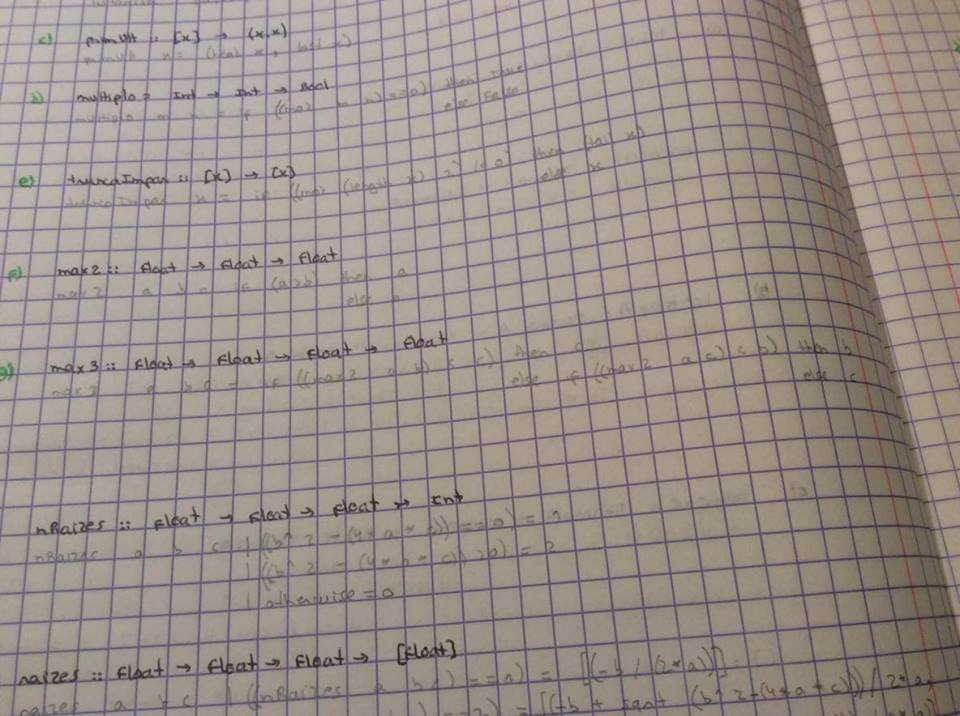 c) primUlt :: [x] → (x,x)
primUlt x = (head x, last x)
d) multiplo = Int → Int → Bool
multiplo m n = if ((mod m n) == 0) then True
else False
e) truncaImpar :: [x] → [x]
truncaImpar x = if ((mod (length x) 2) /= 0) then (tail x)
else x
f) max2 :: Float → Float → Float
max2 a b = if (a>b) then a
else b
g) max3 :: Float → Float → Float → Float
max3 a b c = if ((max2 a b) < c) then c
else if ((max2 a c) < b) then b
else c
nRaizes :: Float → Float → Float → Int
nRaizes a b c | ((b^2 - (4*a*c)) == 0) = 1
| ((b^2 - (4*b*c)) >0) = 2
| otherwise = 0
raizes :: Float → Float → Float → [Float]
raizes a b c | ((nRaizes a b c) == 1) = [(-b / (2*a))]
== 2) = [(-b + sqrt (b^2 - (4*a*c))) / 2*a,